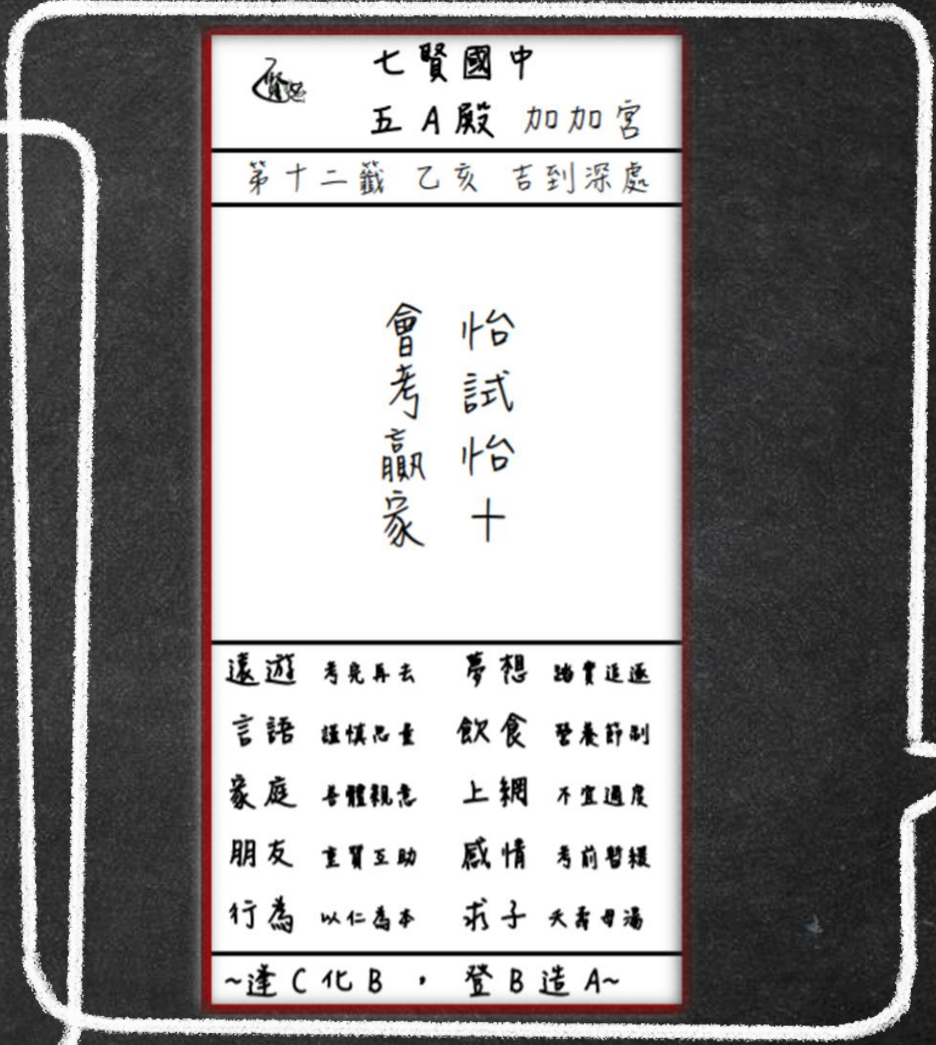 七賢國中
五A殿 加加宮
第十二籤 乙亥 吉到深處
怡試怡十
會考贏家
遠遊 考完再去 夢想 踏實追逐
言語 謹慎思量 飲食 營養節制
家庭 善體親意 上網 不宜過度
朋友 重質互助 感情 考前暫緩
行為 以仁為本 求子 夭壽母湯
~逢C化B，登B造A~